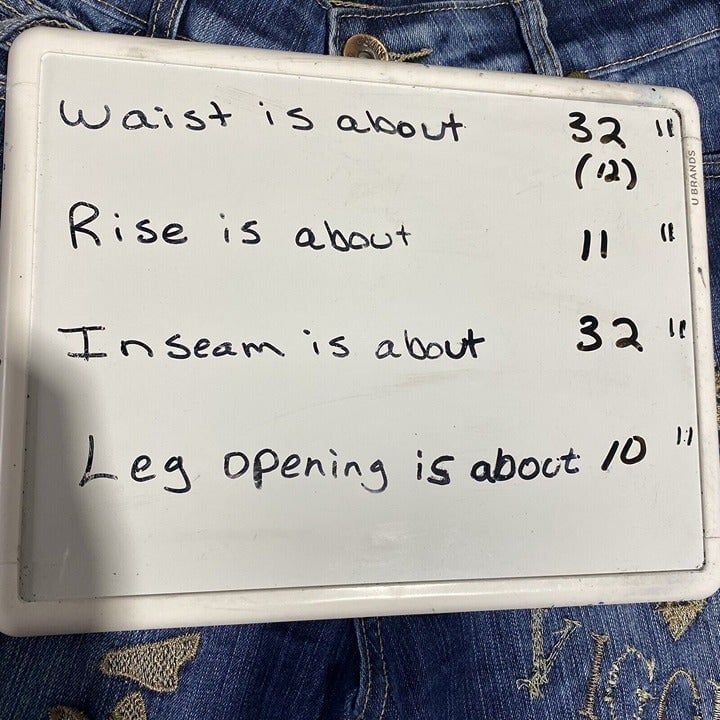 Waist is about 32 "
(12)
Rise is about 11 "
Inseam is about 32 "
Leg opening is about 10 "
U BRANDS